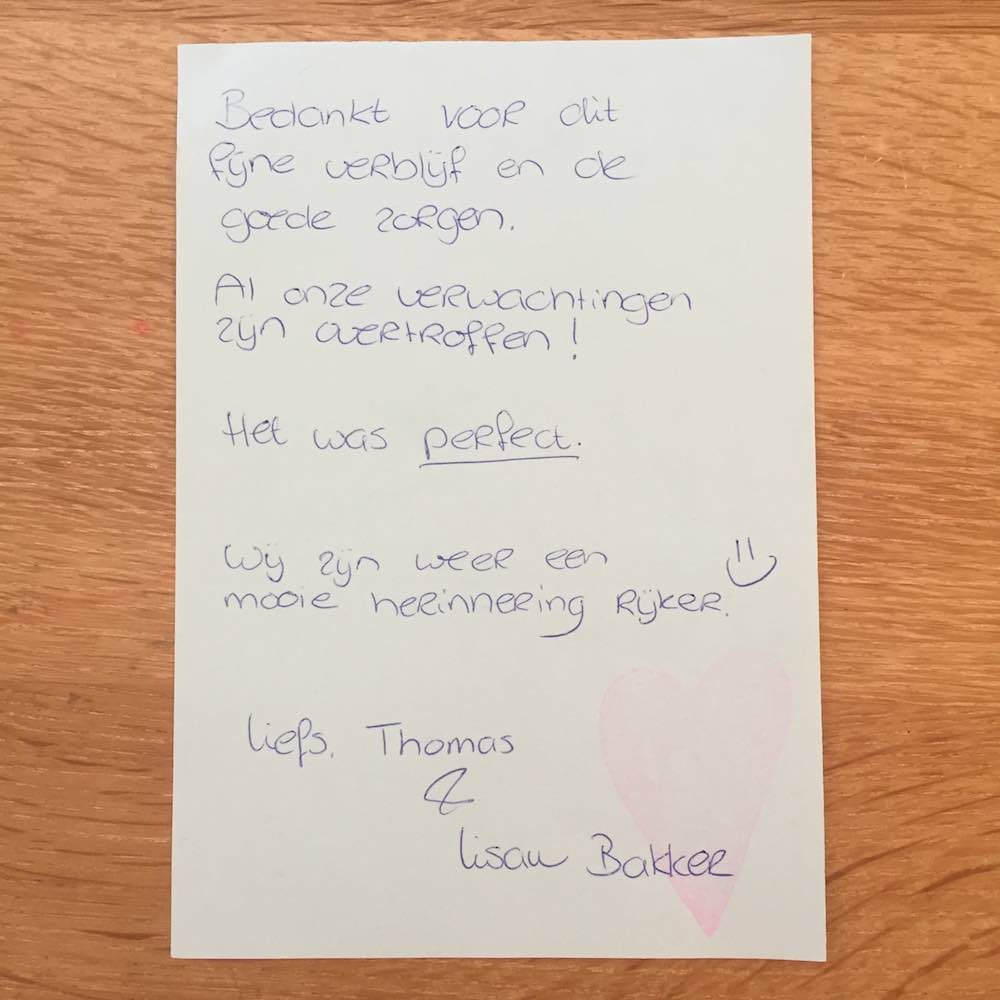 Bedankt voor dit
fijne verblijf en de
goede zorgen.
Al onze verwachtingen
zijn overtroffen!
Het was perfect.
Wij zijn weer een
mooie herinnering rijker.
liefs, Thomas
&
Bakker